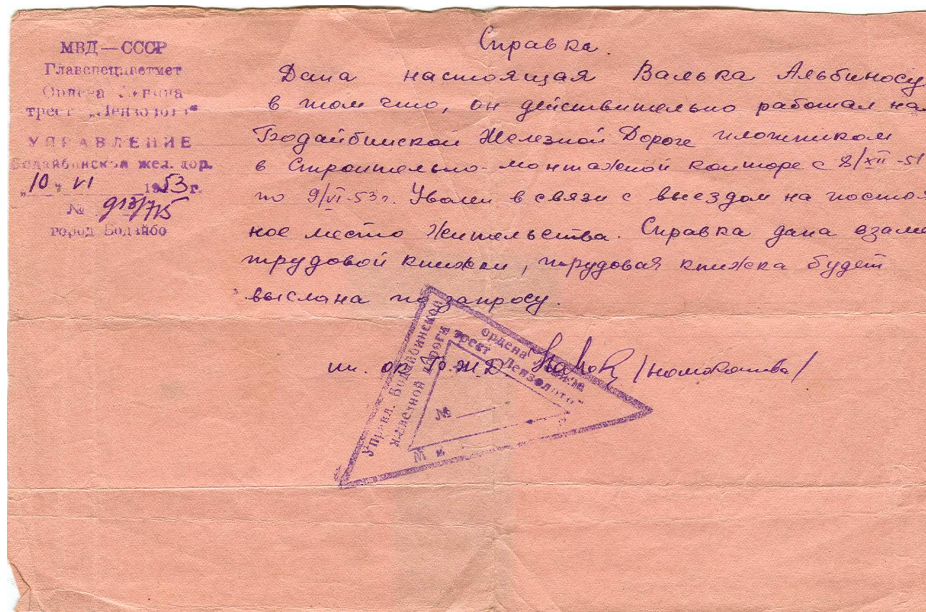 МВД—СССР
Главспеццветмет
Ордена Ленина
трест „Лензолото“
УПРАВЛЕНИЕ
Бодайбинской жел. дор.
„10“ VI 1953г.
№ 913/715
город Бодайбо
Справка.
Дана настоящая Валька Альбиносу
в том что, он действительно работал на
Бодайбинской Железной Дороге плотником
в Строительно-монтажной конторе с 8/XII-51
по 9/VI-53г. Уволен в связи с выездом на постоя
ное место жительства. Справка дана взаме
трудовой книжки, трудовая книжка будет
выслана по запросу.
Б.Ж.Д.
Управл. Бодайбинской
железной дороги
ордена Ленина
трест „Лензолото“
№